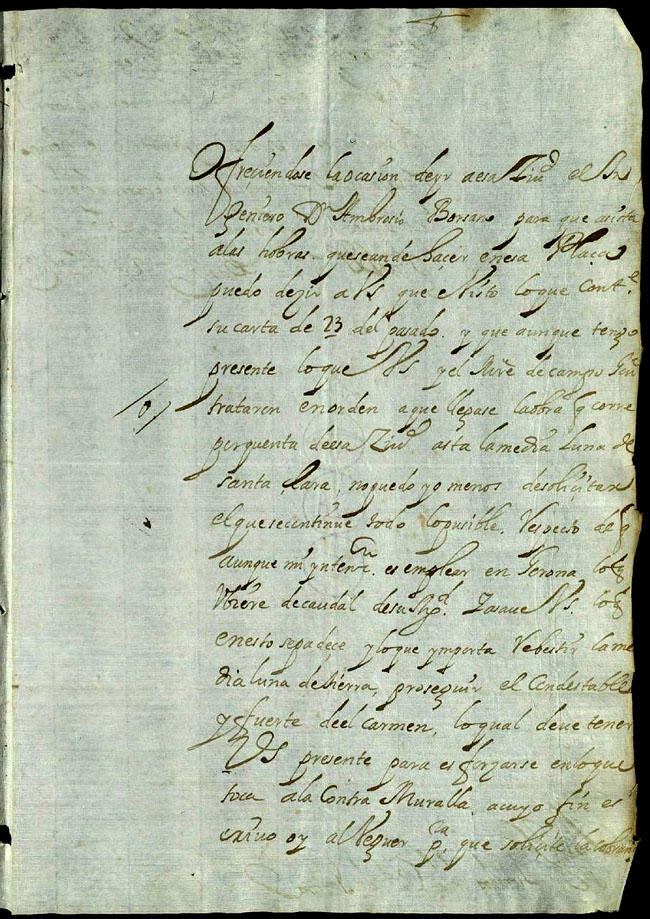 Ofreciendose la ocasion de yr a esa Ziud el In
geniero Dn Ambrosio Borsano para que asista
alas hobras que se an de hacer en esa Plaça
puedo dezir a Vs que e Visto lo que Conte
su carta de 23 del pasado. y que aunque tengo
presente lo que Vs y el Mre de campo Gen
trataron en orden a que llegase la obra q corre
por quenta de esa Ziud asta la media Luna de
santa Clara, no quedo yo menos de solicitar
el que se continue todo lo pusible, Respecto de q
aunque mi yntencn es emplear en Gerona lo q
Vbiere de caudal de su Mgd Ya save Vs. lo q
en esto se padece y lo que ymporta Rebestir la me
dia luna de tierra, proseguir el Condestable
y fuerte de el Carmen, lo qual deve tener
Vs presente para esforzarse en lo que
toca ala Contra Muralla acuyo fin es
crivo oy al Veguer pa que solicite la cobran